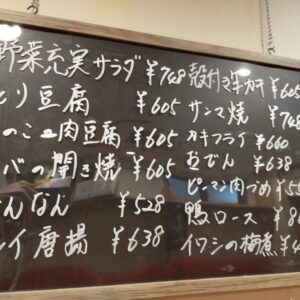 野菜充実サラダ ¥748
とり豆腐 ¥605
のこ肉豆腐 ¥605
バの開き焼 ¥605
んなん ¥528
イ唐揚 ¥638
殻付き生カキ ¥605
サンマ焼 ¥748
カキフライ ¥660
おでん ¥638
ピーマン肉づめ ¥5
鴨ロース ¥8
イワシの梅煮 ¥4